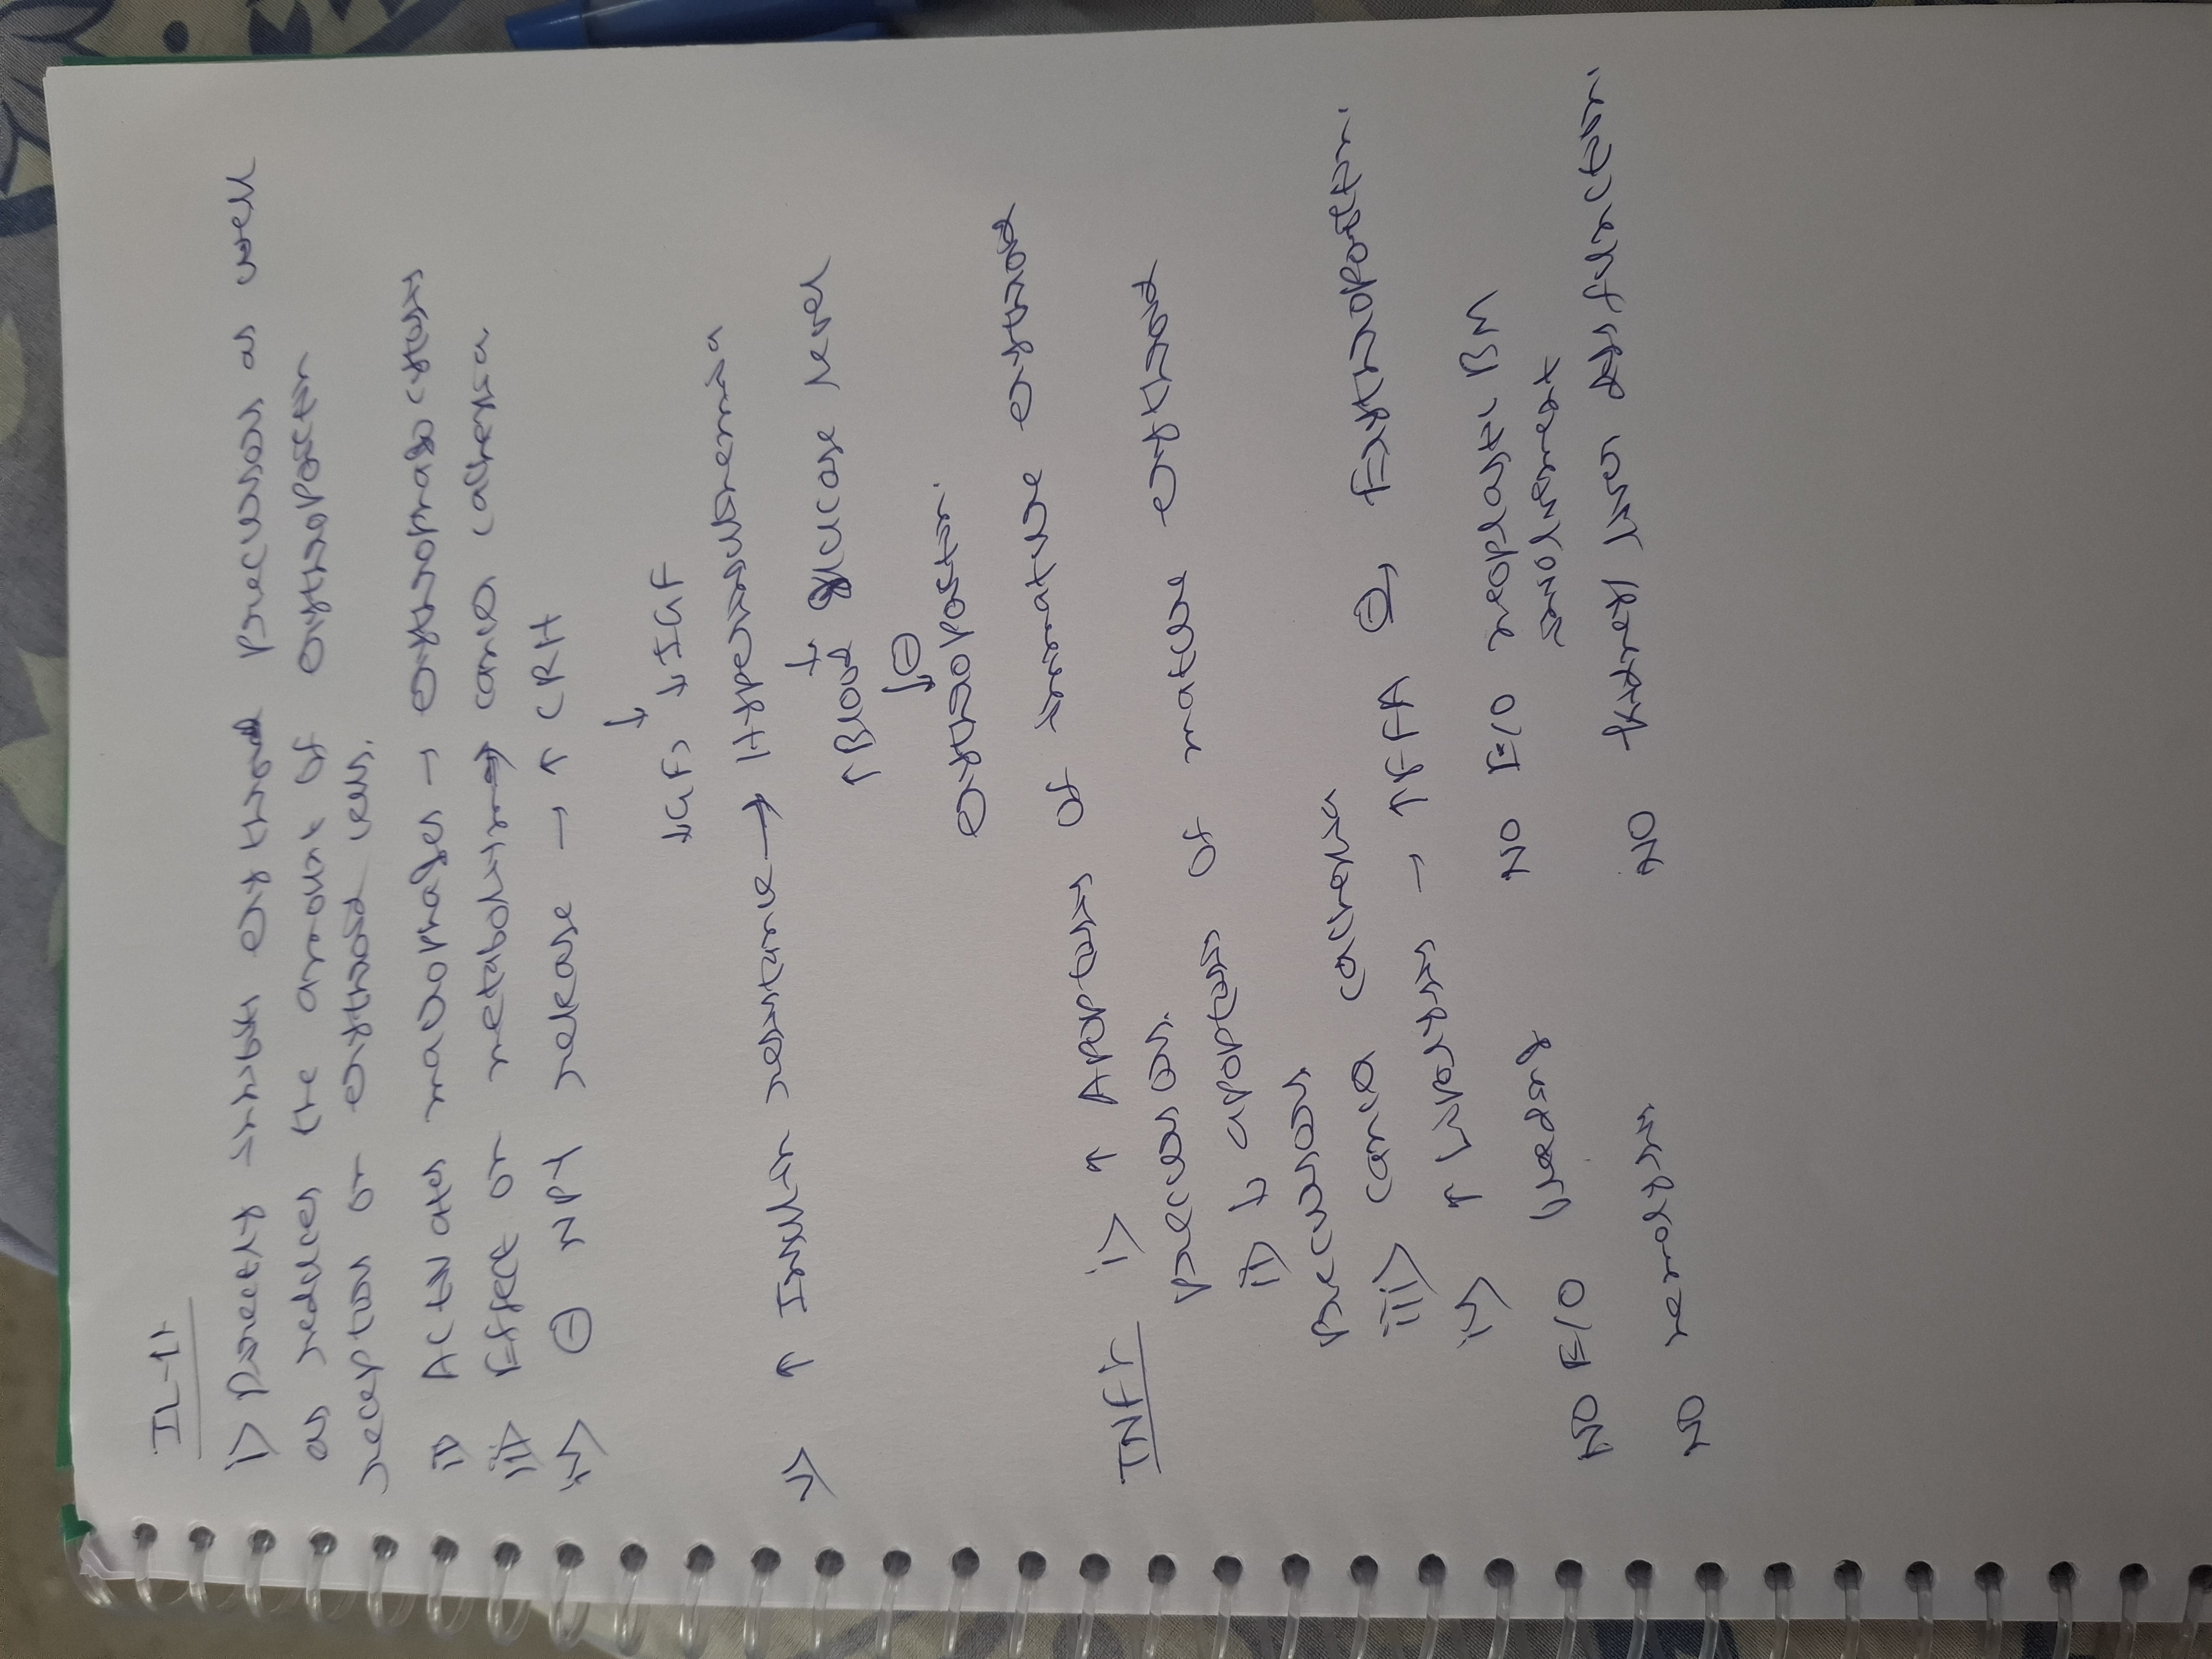 IL-11
i> Directly inhibit erythroid precursors as well
as reduces the amount of erythropoetin
receptors on erythroid cells.
ii> Activates macrophages → erythrophagocytosis
iii> Effect on metabolism → cancer cachexia
iv> ⊖ NPY release → ↑ CRH
↓
↓GF, ↓IGF
v> ↑ Insulin resistance → Hyperinsulinemia
↓
↑ Blood glucose level
↓⊖
erythropoetin.
TNF
i> ↑ Apoptosis of immature erythroid
precursors.
ii> ↓ apoptosis of mature erythroid
precursors
iii> cancer cachexia
iv> ↑ Lipolysis → ↑FFA ⊖, Erythropoetin.
NO E/O bleeding NO E/O neoplastic BM
involvement
NO hemolysis NO kidney/liver dysfunction.